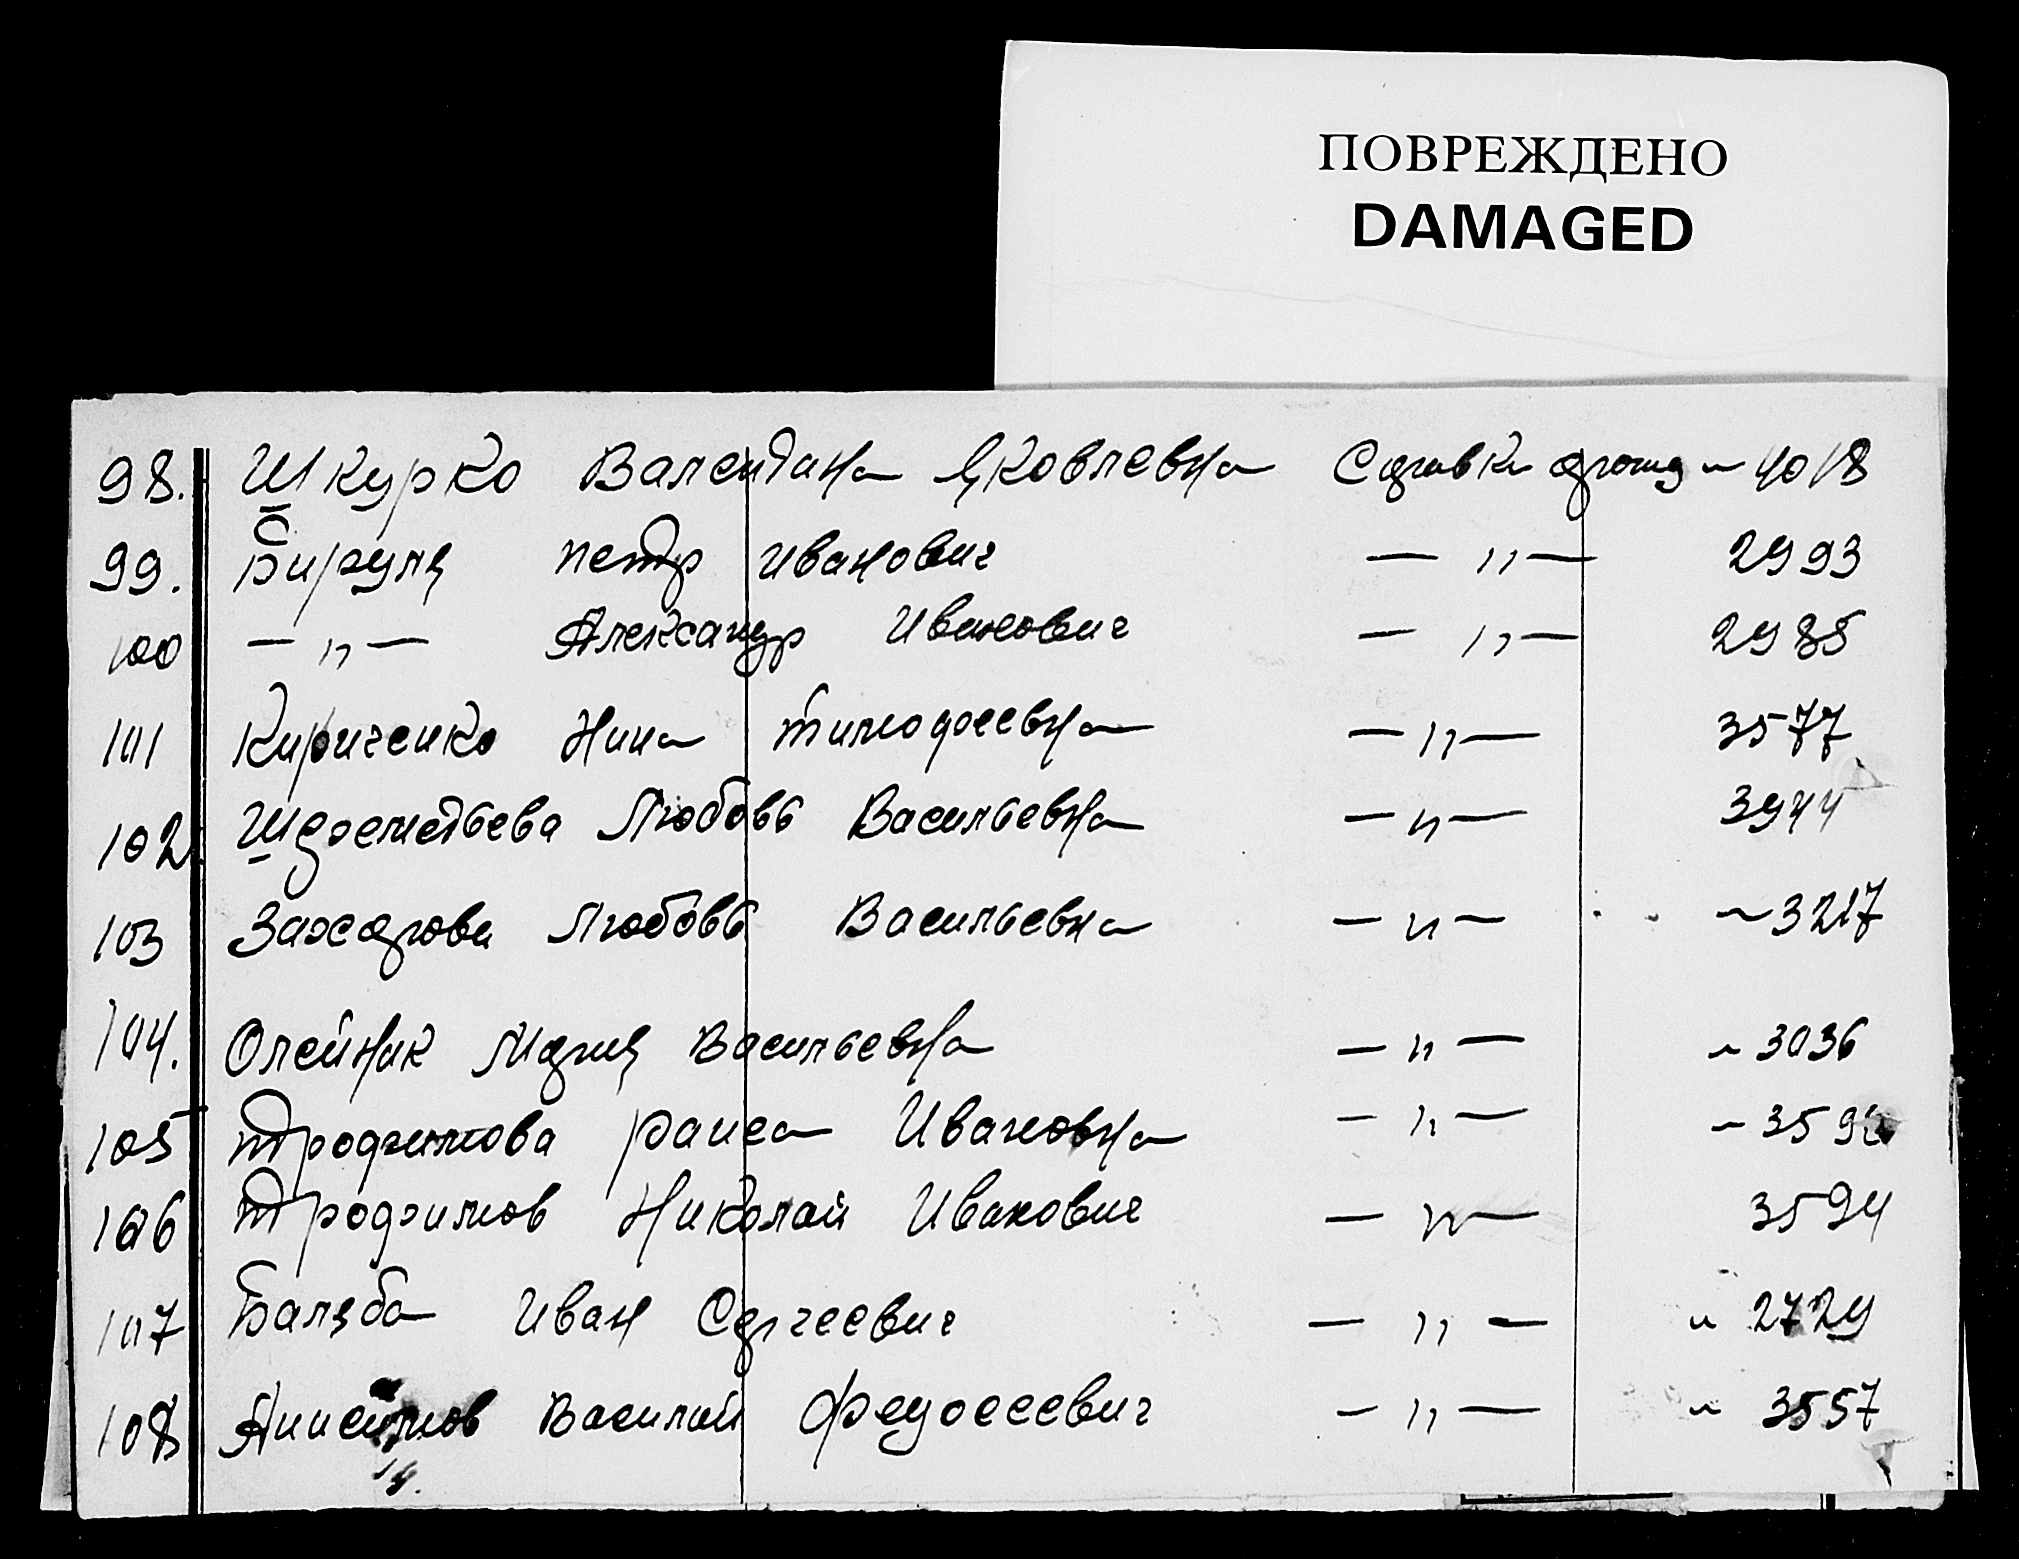 ПОВРЕЖДЕНО
DAMAGED
98. Шкурко Валентина Яковлевна Справка 4018
99. Бируля Петр Иванович — " — 2993
100 — " — Александр Иванович — " — 2985
101 Кириченко Нина Тимофеевна — " — 3577
102. Шереметьева Любовь Васильевна — " — 3944
103 Захарова Любовь Васильевна — " — 3217
104. Олейник Мария Васильевна — " — 3036
105 Трофимова Раиса Ивановна — " —
106 Трофимов Николай Иванович — " — 3594
107 Баляба Иван Сергеевич — " — 2729
108 Анисимов Василий Федосеевич — " — 3557